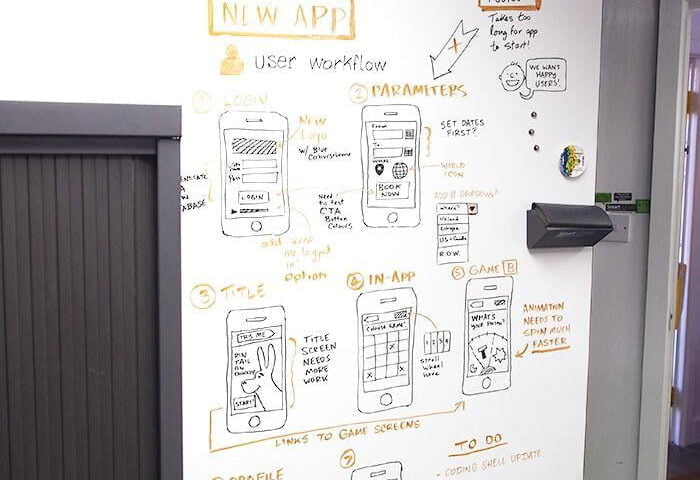 NEW APP
User workflow
Takes too
long for app
to start!
WE WANT
HAPPY
USERS!
① LOGIN
NEW
Logo
w/ Blue
Colourscheme
Pass
LOGIN
DATABASE
add keep
me logged
in
option
② PARAMETERS
From
To
WHERE
BOOK
NOW
SET DATES
FIRST?
WORLD
ICON
Need
to test
CTA
Button
Colours
ADD DROPDOWN?
Where?
Ireland
Europe
US + Canada
R.O.W.
③ TITLE
THIS ME
PIN
TAIL
ON
DONKEY
START
TITLE
SCREEN
NEEDS
MORE
WORK
④ IN-APP
CHOOSE NAME!
X
X
1 2 3 4
Scroll
wheel
here
⑤ GAME B
WHATS
your
ANIMATION
NEEDS TO
SPIN MUCH
FASTER
LINKS TO GAME SCREENS
TO DO
- CODING SHELL UPDATE
PROFILE
⑦